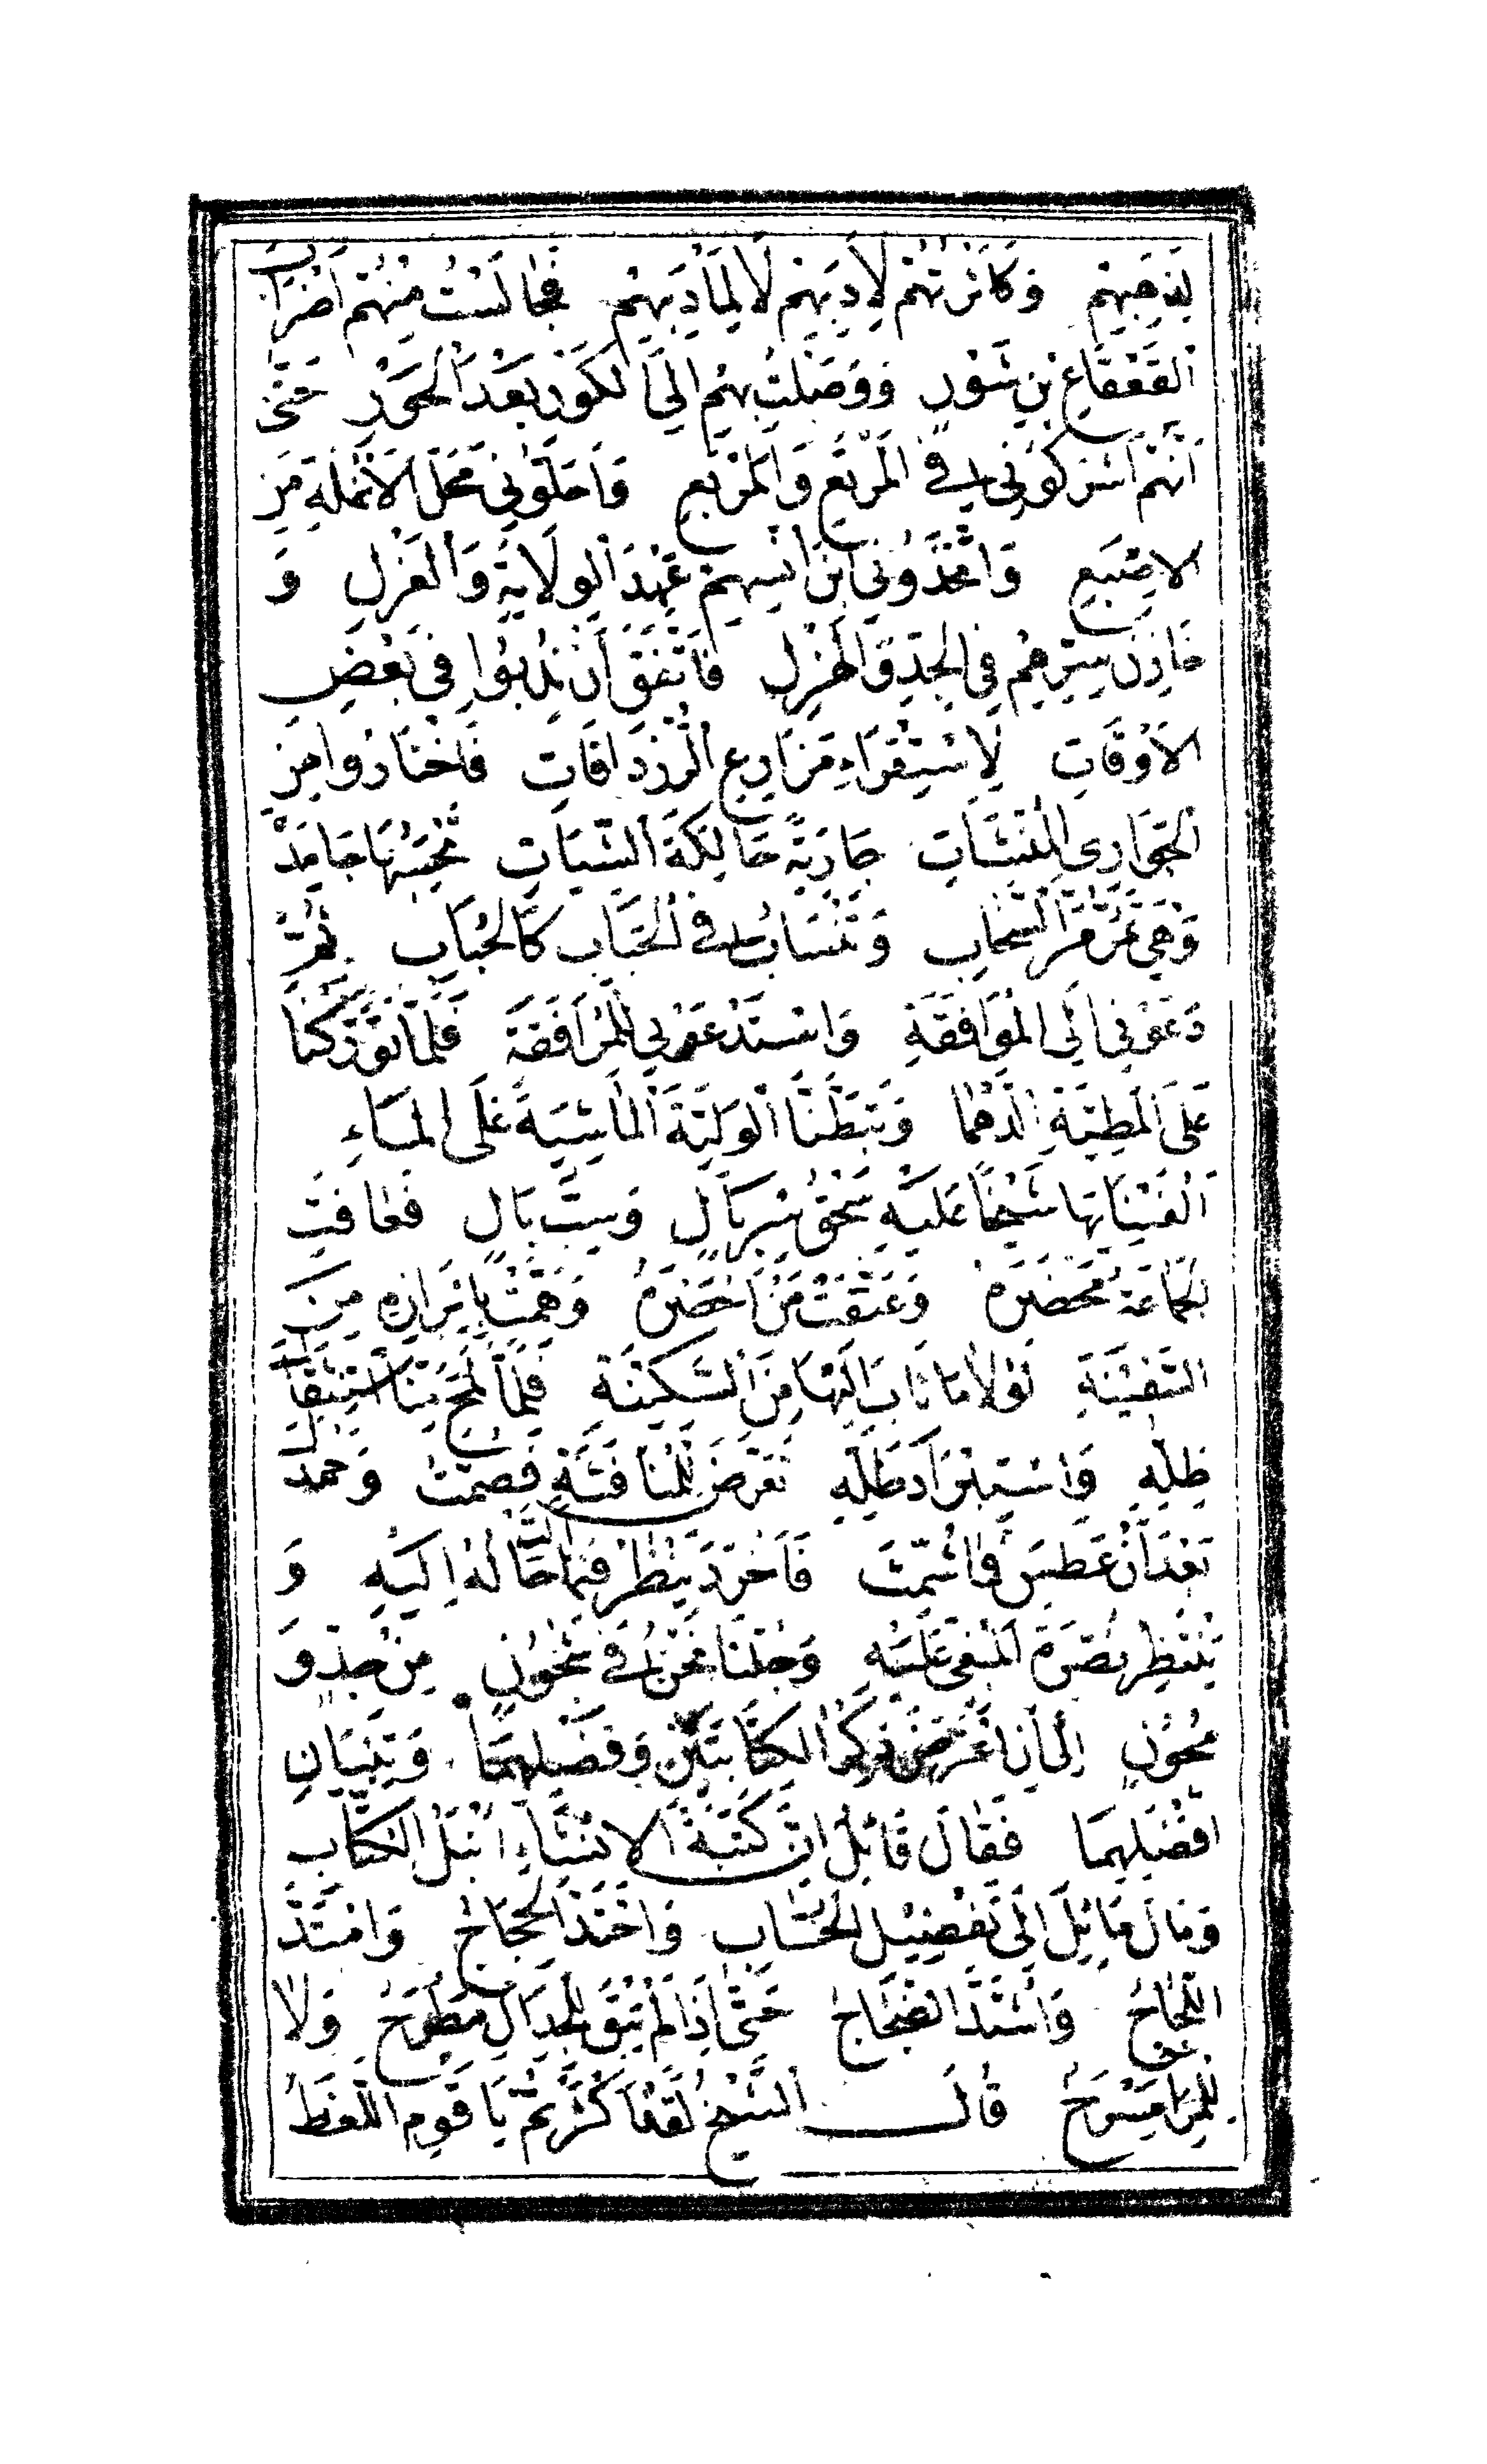 لِذَهَبِهِمْ وَكَاثَرْتُهُمْ لِأَدَبِهِمْ لَا لِمَآدِبِهِمْ فَجَالَسْتُ مِنْهُمْ أَضْرَابَ
القَعْقَاعِ بنِ شَوْرٍ وَوَصَلْتُ بِهِمْ إِلَى الكَوْرِ بَعْدَ الحَوْرِ حَتَّى
أَنَّهُمْ أَشْرَكُونِي فِي المَرْتَعِ وَالمَرْبَعِ وَأَحَلُّونِي مَحَلَّ الأَنْمُلَةِ مِنَ
الإِصْبَعِ وَاتَّخَذُونِي ابْنَ أُنْسِهِمْ عِنْدَ الوِلَايَةِ وَالعَزْلِ وَ
خَازِنَ سِرِّهِمْ فِي الجِدِّ وَالهَزْلِ فَاتَّفَقَ أَنْ نُدِبُوا فِي بَعْضِ
الأَوْقَاتِ لِاسْتِقْرَاءِ مَزَارِعِ الرُّزْدَاقَاتِ فَاخْتَارُوا مِنَ
الجَوَارِي المُنْشَآتِ جَارِيَةً حَالِكَةَ الشِّيَاتِ تَحْسَبُهَا جَامِدَةً
وَهِيَ تَمُرُّ مَرَّ السَّحَابِ وَتَنْسَابُ فِي الحَبَابِ كَالحُبَابِ ثُمَّ
دَعَوْنِي إِلَى المُوَافَقَةِ وَاسْتَدْعَوْنِي لِلْمُرَافَقَةِ فَلَمَّا تَوَرَّكْنَا
عَلَى المَطِيَّةِ الدَّهْمَا وَتَبَطَّنَّا الوَلِيَّةَ المَاشِيَةَ عَلَى المَاءِ
أَلْفَيْنَا بِهَا شَيْخًا عَلَيْهِ سَحْقُ سِرْبَالٍ وَسِبٌّ بَالٍ فَعَافَتِ
الجَمَاعَةُ مَحْضَرَهُ وَعَنَّفَتْ مَنْ أَحْضَرَهُ وَهَمَّتْ بِإِبْرَازِهِ مِنَ
السَّفِينَةِ لَوْلَا مَا ثَابَ إِلَيْهَا مِنَ السَّكِينَةِ فَلَمَّا لَمَحَ مِنَّا اسْتِثْقَالَ
ظِلِّهِ وَاسْتِبْرَادَ طَلِّهِ تَعَرَّضَ لِلْمُنَافَثَةِ فَصُمِّتَ وَحَمْدَلَ
بَعْدَ أَنْ عَطَسَ فَمَا شُمِّتَ فَأَخْرَدَ يَنْظُرُ فِيمَا آلَتْ حَالُهُ إِلَيْهِ وَ
يَنْتَظِرُ نُصْرَةَ المَبْغِيِّ عَلَيْهِ وَجُلْنَا نَحْنُ فِي شُجُونٍ مِنْ جِدٍّ وَ
مُجُونٍ إِلَى أَنِ اعْتَرَضَ ذِكْرُ الكِتَابَتَيْنِ وَفَضْلِهِمَا وَتِبْيَانِ
أَفْضَلِهِمَا فَقَالَ قَائِلٌ إِنَّ كَتَبَةَ الإِنْشَاءِ أَنْبَلُ الكُتَّابِ
وَمَالَ مَائِلٌ إِلَى تَفْضِيلِ الحُسَّابِ وَاحْتَدَّ الحِجَاجُ وَامْتَدَّ
اللَّجَاجُ وَاشْتَدَّ الضَّجَاجُ حَتَّى إِذَا لَمْ يَبْقَ لِلْجِدَالِ مَطْرَحٌ وَلَا
لِلْمِرَاءِ مَسْرَحٌ قَالَ الشَّيْخُ لَقَدْ أَكْثَرْتُمْ يَا قَوْمِ اللَّغَطَ